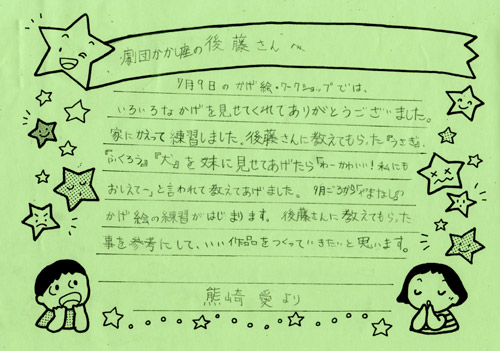 劇団かかし座の後藤さんへ
9月9日のかげ絵・ワークショップでは、
いろいろなかげを見せてくれてありがとうございました。
家にかえって練習しました。後藤さんに教えてもらった『うさぎ』、
『ふくろう』『犬』を妹に見せてあげたら「わーかわいい!私にも
おしえてー」と言われて教えてあげました。9月ごろから『やまなし』の
かげ絵の練習がはじまります。後藤さんに教えてもらった
事を参考にして、いい作品をつくっていきたいと思います。
熊崎 愛より